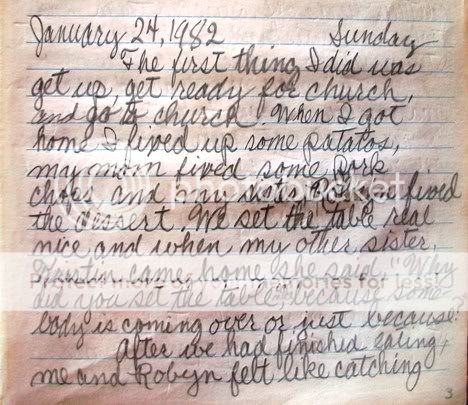 January 24, 1982 Sunday
The first thing I did was
get up, get ready for church,
and go to church. When I got
home I fixed up some patatos,
my mom fixed some Pork
chops and my sister fixed
the dessert. We set the table real
nice and when my other sister,
Kristin came home she said, "Why
did you set the table, because some
body is coming over or just because?"
After we had finished eating,
me and Robyn felt like catching
3
photobucket
Protect more of your memories for less!